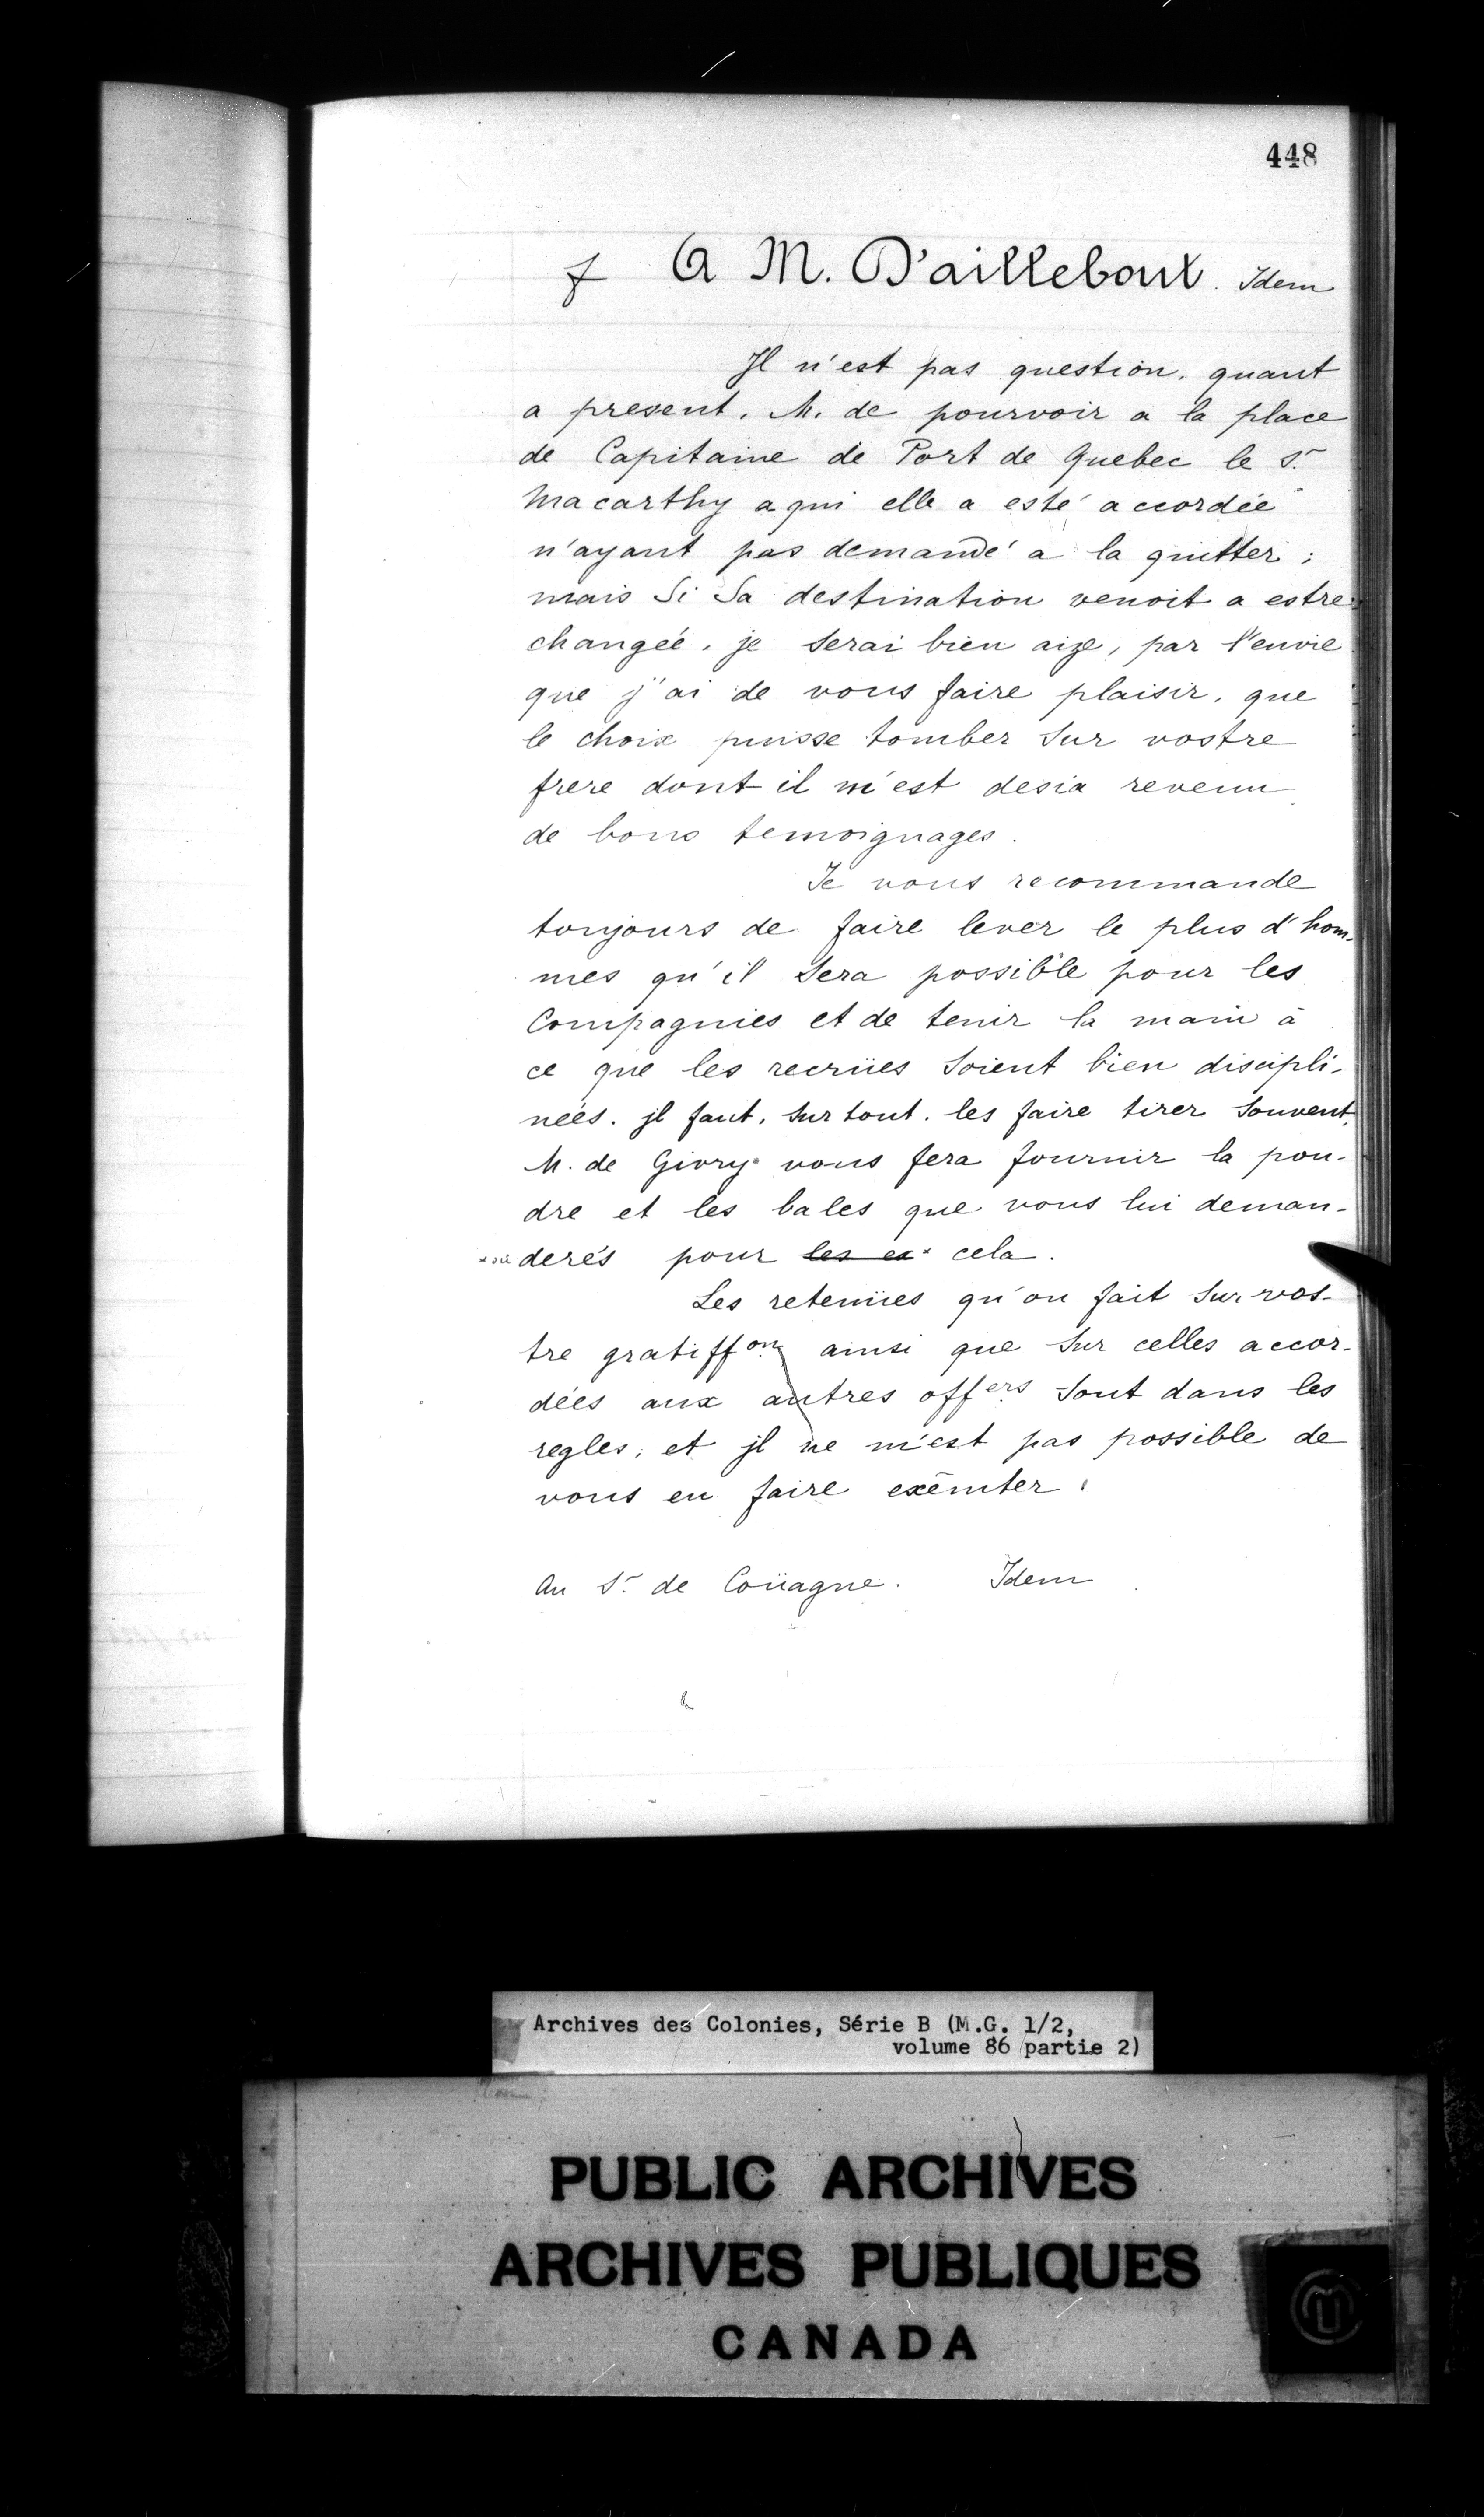 448
f A M. D'ailleboust. Idem
Il n'est pas question, quant
a present, M. de pourvoir a la place
de Capitaine de Port de Quebec le S.r
Macarthy a qui elle a esté accordée
n'ayant pas demandé a la quitter;
mais Si Sa destination venoit a estre
changée, je Serai bien aize, par l'envie
que j'ai de vous faire plaisir, que
le choix puisse tomber Sur vostre
frere dont il m'est desia revenu
de bons temoignages.
Je vous recommande
toujours de faire lever le plus d'hom-
mes qu'il Sera possible pour les
Compagnies et de tenir la main à
ce que les recrües Soient bien discipli-
neés. jl faut, Surtout, les faire tirer Souvent,
M. de Givry vous fera fournir la pou-
dre et les bales que vous lui deman-
derés pour les ex cela.
Les retenües qu'on fait Sur vos-
tre gratiff.on ainsi que Sur celles accor-
dées aux autres off.ers Sont dans les
regles, et jl ne m'est pas possible de
vous en faire exémter.
Au S.r de Coüagne. Idem
Archives des Colonies, Série B (M.G. 1/2,
volume 86 partie 2)
PUBLIC ARCHIVES
ARCHIVES PUBLIQUES
CANADA